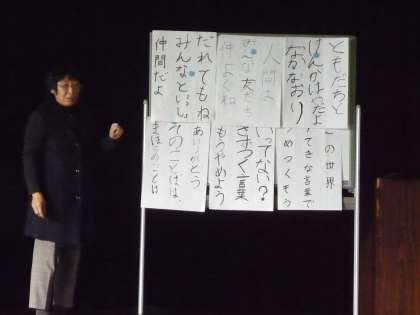 ともだちと
けんかはいやだよ
なかなおり
人間は
み〜んな友だち
仲よくね
だれでもね
みんなといっしょ
仲間だよ
この世界
すてきな言葉で
うめつくそう
いってない?
きずつく言葉
もうやめよう
ありがとう
そのことばは、
まほうのことば